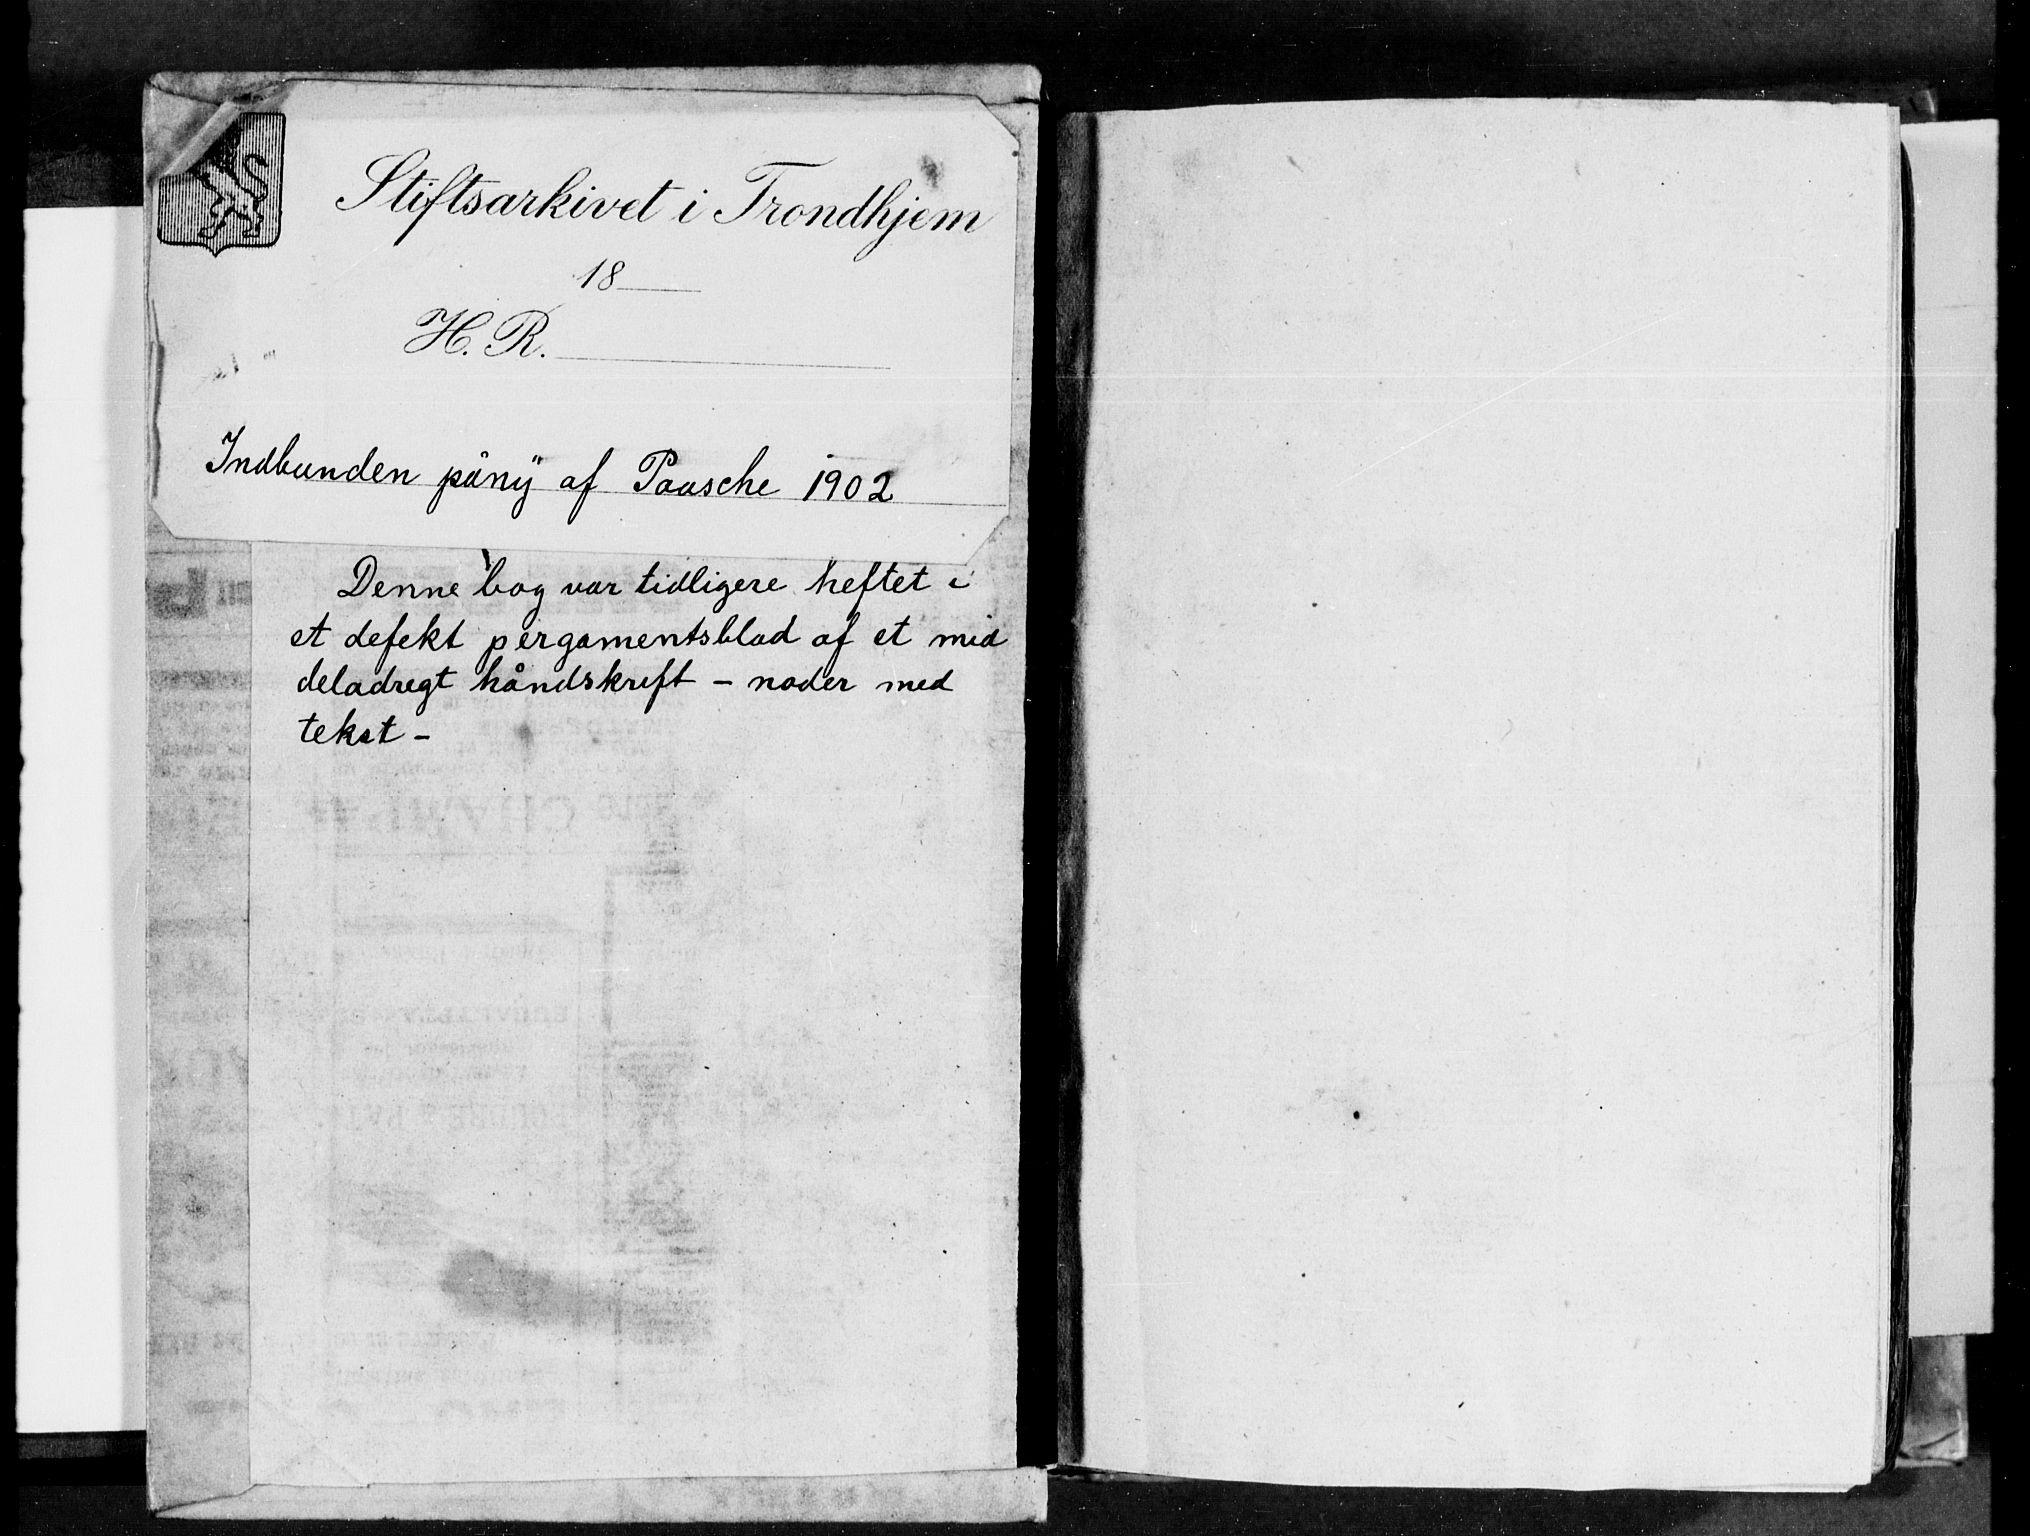 Stiftsarkivet i Trondhjem
18
H. R.
Indbunden påny af Paasche 1902
Denne bog var tidligere heftet i
et defekt pergamentsblad af et mid
deladregt håndskrift – noder med
tekst –